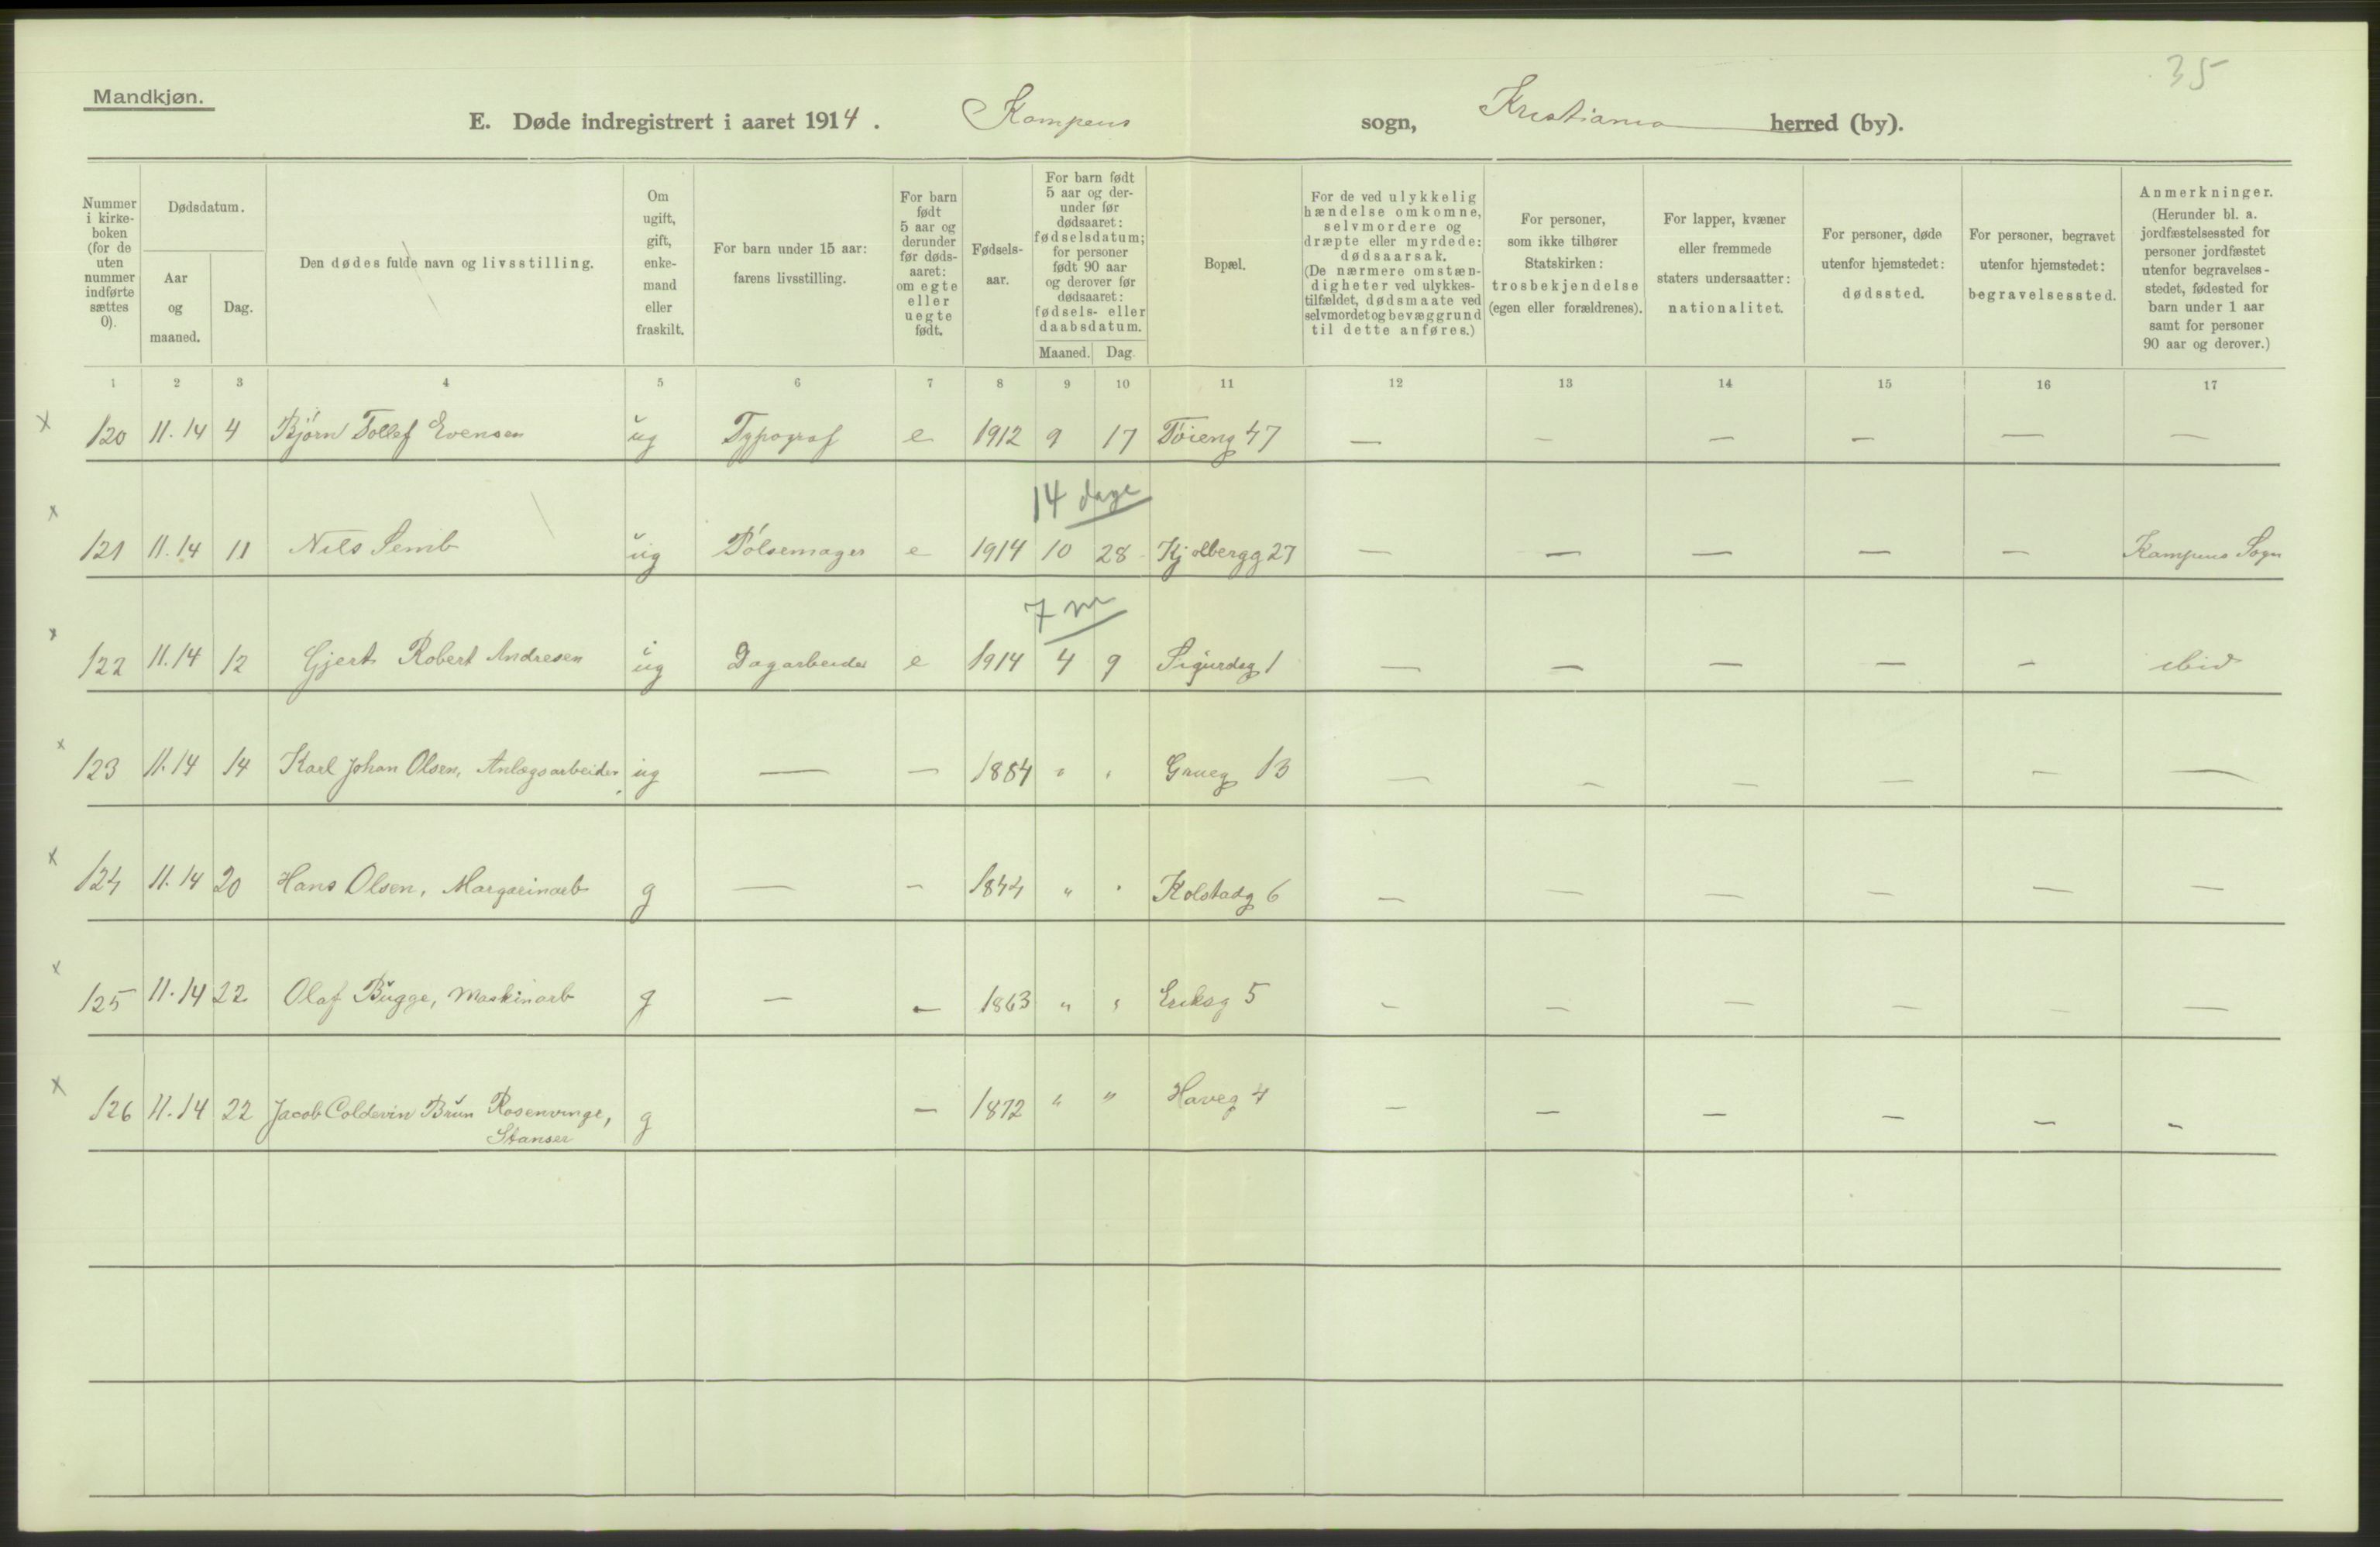 35
Mandkjøn.
E. Døde indregistrert i aaret 1914. Kampens sogn, Kristiania herred (by).
Nummer i kirke- boken (for de uten nummer indførte sættes 0).
Dødsdatum.
Aar og maaned.
Dag.
Den dødes fulde navn og livsstilling.
Om ugift, gift, enke- mand eller fraskilt.
For barn under 15 aar: farens livsstilling.
For barn født 5 aar og derunder før døds- aaret: om egte eller uegte født.
Fødsels- aar.
For barn født 5 aar og der- under før dødsaaret: fødselsdatum; for personer født 90 aar og derover før dødsaaret: fødsels- eller daabsdatum.
Maaned. Dag.
Bopæl.
For de ved ulykkelig hændelse omkomne, selvmordere og dræpte eller myrdede: dødsaarsak. (De nærmere omstæn- digheter ved ulykkes- tilfældet, dødsmaate ved selvmordet og bevæggrund til dette anføres.)
For personer, som ikke tilhører Statskirken: trosbekjendelse (egen eller forældrenes).
For lapper, kvæner eller fremmede staters undersaatter: nationalitet.
For personer, døde utenfor hjemstedet: dødssted.
For personer, begravet utenfor hjemstedet: begravelsessted.
Anmerkninger. (Herunder bl. a. jordfæstelsessted for personer jordfæstet utenfor begravelses- stedet, fødested for barn under 1 aar samt for personer 90 aar og derover.)
1 2 3 4 5 6 7 8 9 10 11 12 13 14 15 16 17
x 120 11.14 4 Bjørn Tollef Evensen ug Typograf e 1912 9 17 Tøieng 47 — — — — — —
14 dage
x 121 11.14 11 Nils Semb ug Pølsemager e 1914 10 28 Kjølbergg 27 — — — — — Kampens Sogn
7 m
x 122 11.14 12 Gjert Robert Andresen ug Dagarbeider e 1914 4 9 Sigurdsg 1 — — — — — ibid
x 123 11.14 14 Karl Johan Olsen, Anlægsarbeider, ug — — 1884 " " Grueg 13 — — — — — —
x 124 11.14 20 Hans Olsen, Margarinarb g — — 1844 " " Kolstadg 6 — — — — — —
x 125 11.14 22 Olaf Bugge, Maskinarb g — — 1863 " " Eriksg 5 — — — — — —
x 126 11.14 22 Jacob Coldevin Brun Rosenvinge, g — 1872 " " Haveg 4 — — — — — —
Stanser